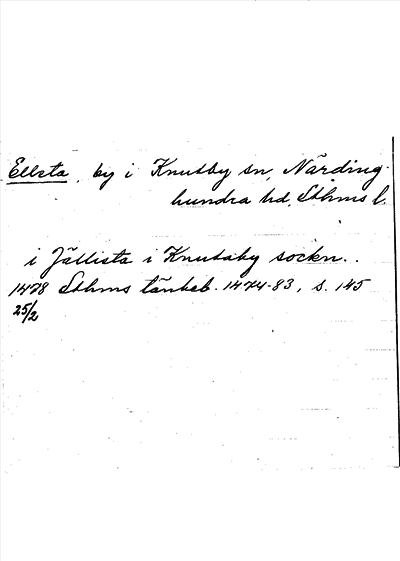 Ellsta, by i Knutby sn, Närding-
hundra hd, Sthms l.
i Jällista i Knutaby sockn..
1478 Sthms tänkeb. 1474-83, s. 145
25/2